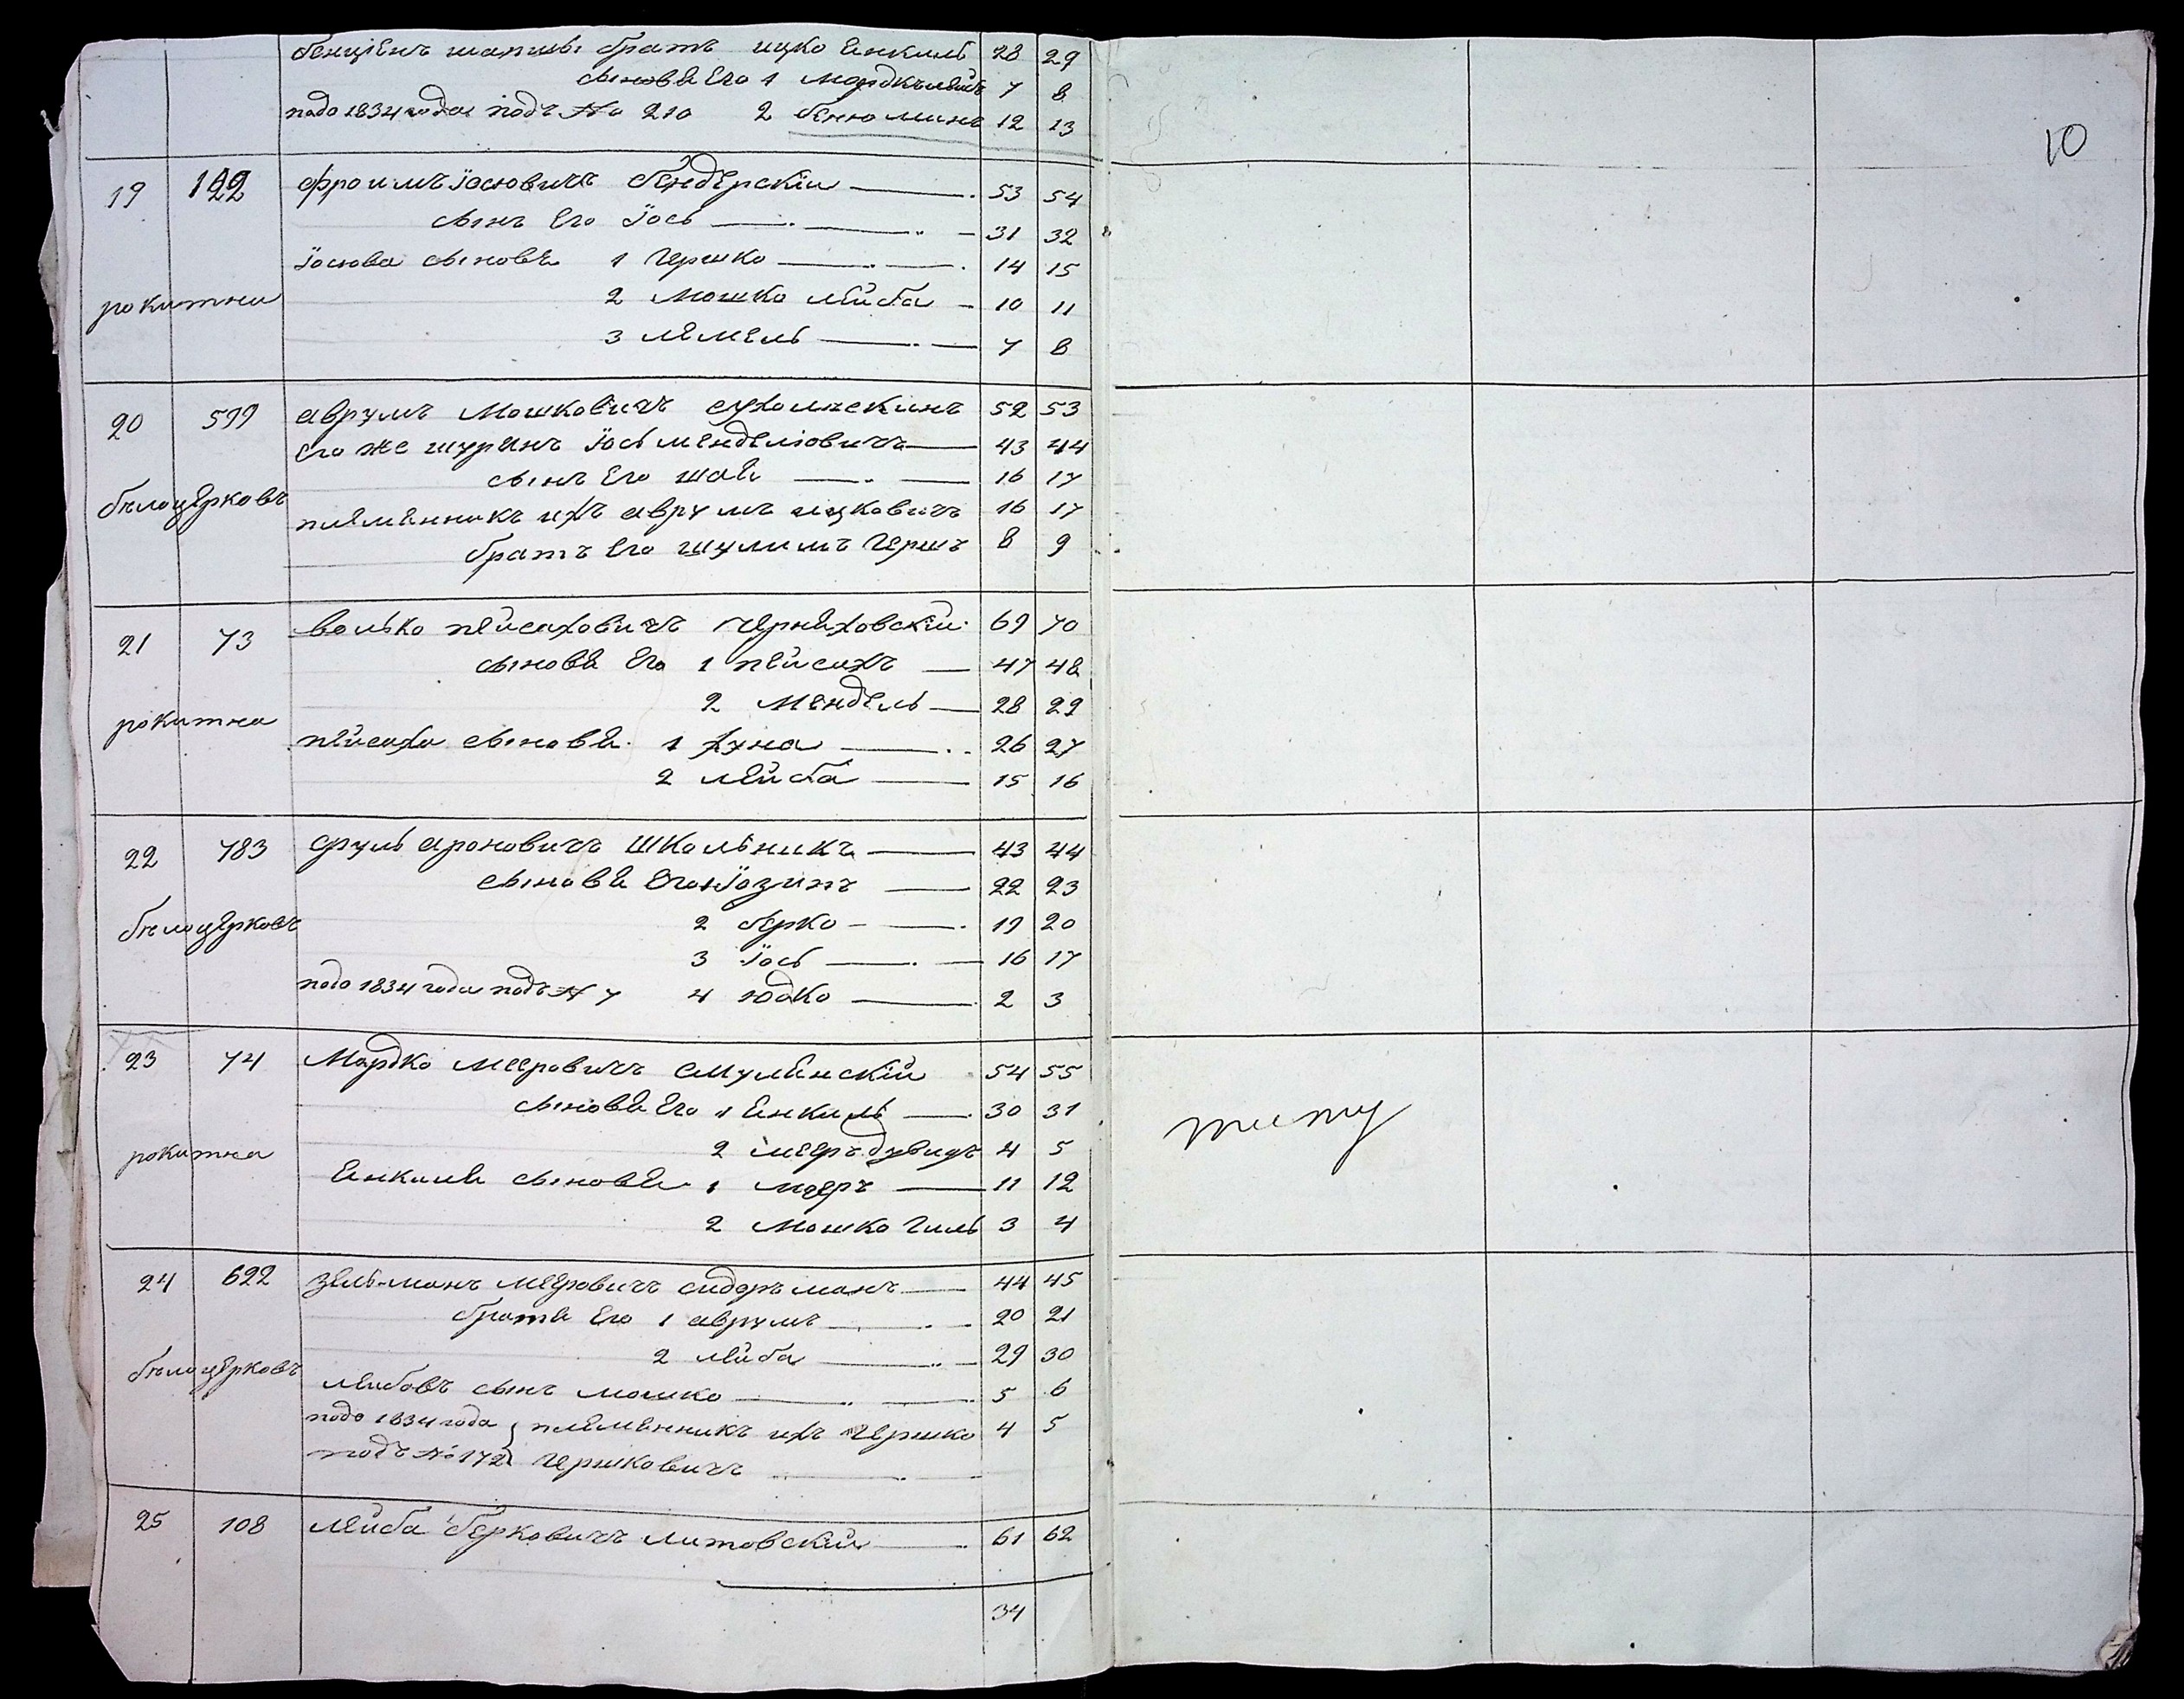 бенціенъ шапшы братъ ицко Янкиль 28 29
сыновя Его 1 Мордкълейбъ 7 8
подо 1834 года подъ № 210 2 бенюминъ 12 13
10
19 122 фроимъ Іосювичъ бендерскіи 53 54
сынъ Его Іось 31 32
Іосюва сыновя 1 гершко 14 15
рокитни 2 Мошко лейба 10 11
3 лемель 7 8
20 599 аврумъ Мошковичъ 52 53
Его же шуринъ Іось менделювичъ 43 44
сынъ Его шая 16 17
бѣлоцерковъ племянникъ ихъ аврумъ ицковичъ 16 17
братъ Его шулимъ герш 8 9
21 73 волько пейсаховичъ черняховскіи 69 70
сыновя Его 1 пейсахъ 47 48
2 Мендель 28 29
рокитна пейсаха сыновя 1 хуна 26 27
2 лейба 15 16
22 783 сруль ароновичъ школьникъ 43 44
сыновя Его 1 Іозипъ 22 23
бѣлоцерковъ 2 берко 19 20
3 Іось 16 17
подо 1834 года подъ № 7 4 юдко 2 3
23 74 Мордко меровичъ смулянскій 54 55
сыновя Его 1 Янкиль 30 31
типу
рокитна 2 мееръ дувидъ 4 5
Янкиля сыновя 1 мееръ 11 12
2 Мошко гиль 3 4
24 622 зельманъ меровичъ сидерманъ 44 45
братя Его 1 аврумъ 20 21
2 лейба 29 30
бѣлоцерковъ лейбовъ сынъ мошко 5 6
подо 1834 года племянникъ ихъ гершко 4 5
подъ № 172 гершковичъ
25 108 лейба берковичъ литовскій 61 62
34